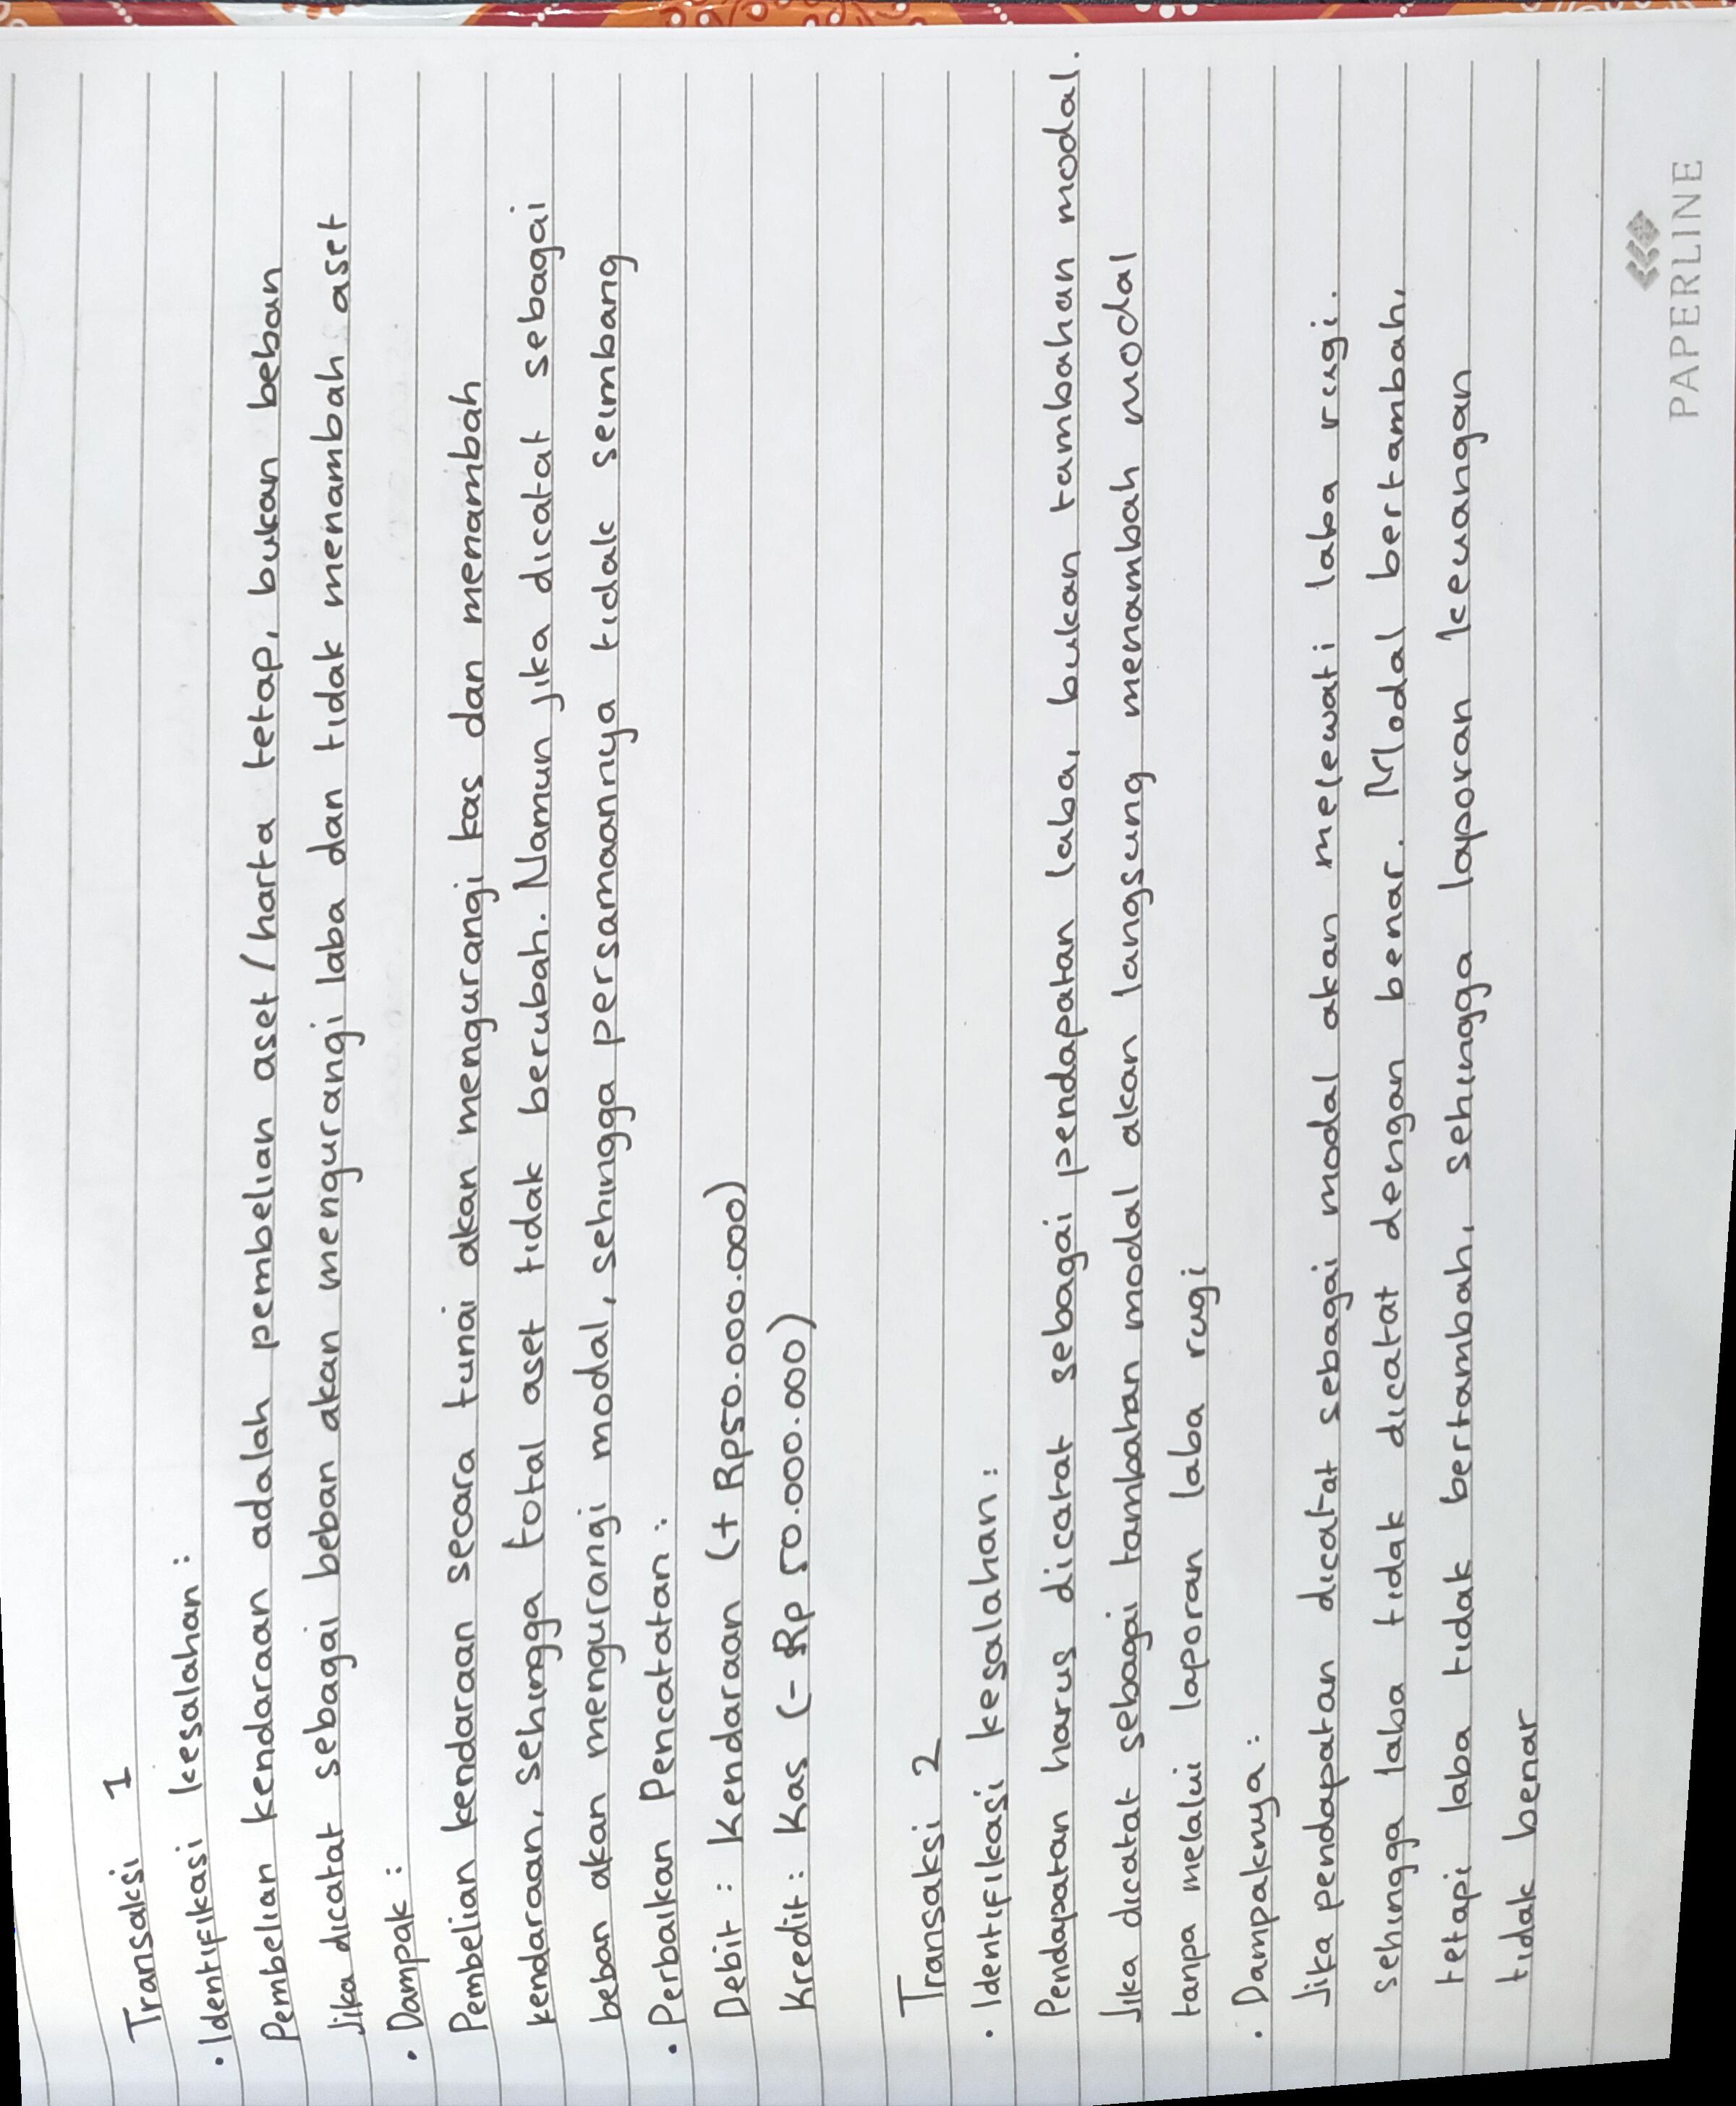 Transaksi 1
• Identifikasi kesalahan :
Pembelian kendaraan adalah pembelian aset / harta tetap, bukan beban
Jika dicatat sebagai beban akan mengurangi laba dan tidak menambah aset
• Dampak :
Pembelian kendaraan secara tunai akan mengurangi kas dan menambah
kendaraan, sehingga total aset tidak berubah. Namun jika dicatat sebagai
beban akan mengurangi modal, sehingga persamaannya tidak seimbang
• Perbaikan Pencatatan :
Debit : Kendaraan (+ Rp50.000.000)
Kredit : Kas (- Rp 50.000.000)
Transaksi 2
• Identifikasi kesalahan :
Pendapatan harus dicatat sebagai pendapatan laba, bukan tambahan modal.
Jika dicatat sebagai tambahan modal akan langsung menambah modal
tanpa melalui laporan laba rugi
• Dampaknya :
Jika pendapatan dicatat sebagai modal akan melewati laba rugi.
sehingga laba tidak dicatat dengan benar. Modal bertambah,
tetapi laba tidak bertambah, sehingga laporan keuangan
tidak benar
PAPERLINE